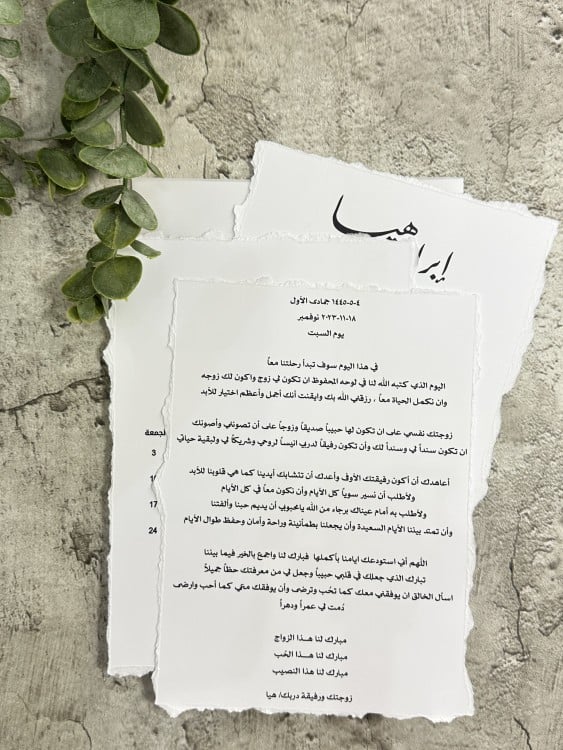 هيا
إبرا
١٤٤٥-٥-٤ جمادى الأول
٢٠٢٣-١١-١٨ نوفمبر
يوم السبت
في هذا اليوم سوف تبدأ رحلتنا معاً
اليوم الذي كتبه الله لنا في لوحه المحفوظ ان تكون لي زوج واكون لك زوجه
وان نكمل الحياة معاً ، رزقني الله بك وايقنت أنك أجمل وأعظم اختيار للأبد
زوجتك نفسي على ان تكون لها حبيباً صديقاً وزوجاً على أن تصوني وأصونك
ان تكون سنداً لي وسنداً لك وأن تكون رفيقاً لدربي انيساً لروحي وشريكاً لي ولبقية حياتي
أعاهدك أن أكون رفيقتك الأوف وأعدك أن تتشابك أيدينا كما هي قلوبنا للأبد
ولأطلب أن نسير سوياً كل الأيام وأن نكون معاً في كل الأيام
ولأطلب به أمام عيناك برجاء من الله يامحبوبي أن يديم حبنا وألفتنا
وأن تمتد بيننا الأيام السعيدة وأن يجعلنا بطمأنينة وراحة وأمان وحفظ طوال الأيام
اللهم أني استودعك ايامنا بأكملها فبارك لنا واجمع بالخير فيما بيننا
تبارك الذي جعلك في قلبي حبيباً وجعل لي من معرفتك حظاً جميلاً
اسأل الخالق ان يوفقني معك كما تحُب وترضى وأن يوفقك معي كما أحب وارضى
دُمت لي عمراً ودهراً
مبارك لنا هذا الزواج
مبارك لنا هذا الحُب
مبارك لنا هذا النصيب
زوجتك ورفيقة دربك/ هيا
لجمعة
3
17
24